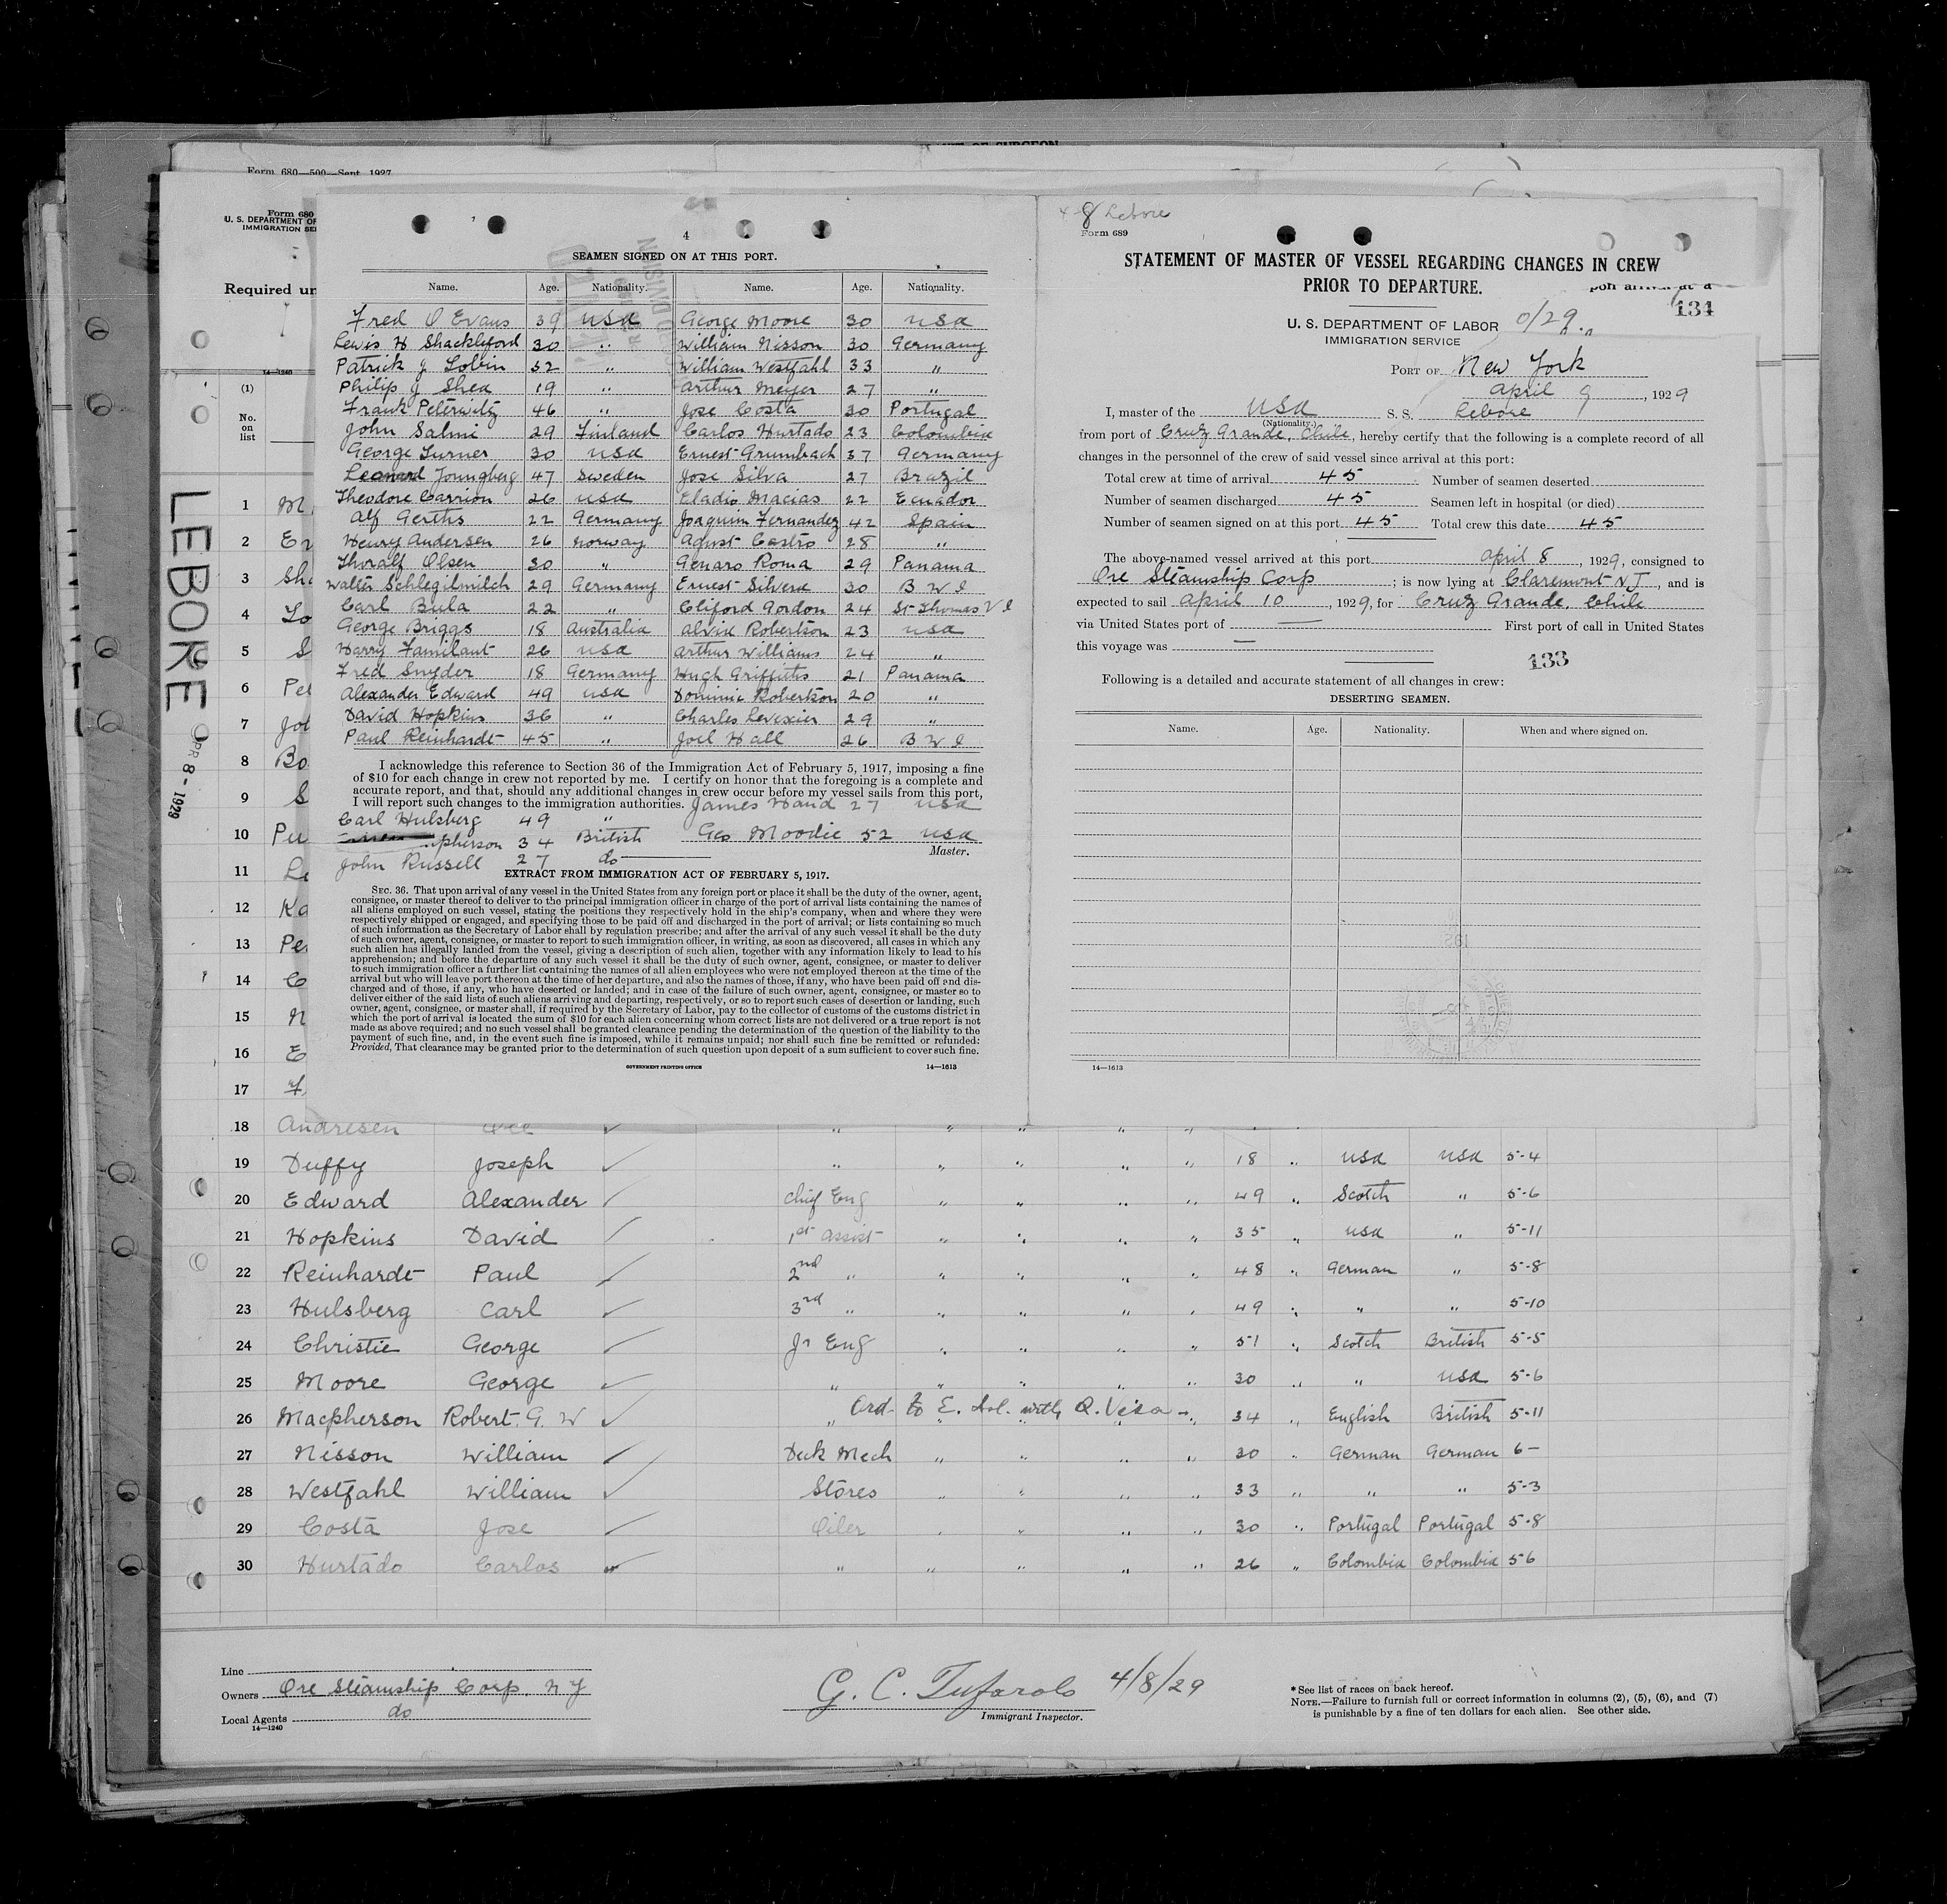 Form 680—500—Sept. 1927
Form 680
U. S. DEPARTMENT OF
IMMIGRATION SE
Required un
14—1240
(1)
No.
on
list
LEBORE
APR 8 - 1929
4
SEAMEN SIGNED ON AT THIS PORT.
Name. Age. Nationality. Name. Age. Nationality.
Fred O Evans 39 USA George Moore 30 USA
Lewis H Shackleford 30 " William Nisson 30 Germany
Patrick J Tobin 32 " William Westfahl 33 "
Philip J Shea 19 " Arthur Meyer 27 "
Frank Peterwitz 46 " Jose Costa 30 Portugal
John Salmi 29 Finland Carlos Hurtado 23 Colombia
George Turner 30 USA Ernest Grumbach 37 Germany
Leonard Joungberg 47 Sweden Jose Silva 27 Brazil
Theodore Carrion 26 USA Eladio Macias 22 Ecuador
Alf Gerths 22 Germany Joaquim Fernandez 42 Spain
Henry Andersen 26 Norway Agust Castro 28 "
Thoralf Olsen 30 " Genaro Roma 29 Panama
Walter Schlegilmilch 29 Germany Ernest Silvera 30 B W I
Carl Bula 22 " Cliford Gordon 24 St Thomas V I
George Briggs 18 Australia Alvin Robertson 23 USA
Harry Familant 26 USA Arthur Williams 24 "
Fred Snyder 18 Germany Hugh Griffiths 21 Panama
Alexander Edward 49 USA Dominic Robertson 20 "
David Hopkins 36 " Charles 29 "
Paul Reinhardt 45 " Joel Hall 26 B W I
I acknowledge this reference to Section 36 of the Immigration Act of February 5, 1917, imposing a fine
of $10 for each change in crew not reported by me. I certify on honor that the foregoing is a complete and
accurate report, and that, should any additional changes in crew occur before my vessel sails from this port,
I will report such changes to the immigration authorities. James Hand 27 USA
Carl Hulsberg 49 "
pherson 34 British Geo Moodie 52 USA
Master.
John Russell 27 do
EXTRACT FROM IMMIGRATION ACT OF FEBRUARY 5, 1917.
SEC. 36. That upon arrival of any vessel in the United States from any foreign port or place it shall be the duty of the owner, agent,
consignee, or master thereof to deliver to the principal immigration officer in charge of the port of arrival lists containing the names of
all aliens employed on such vessel, stating the positions they respectively hold in the ship's company, when and where they were
respectively shipped or engaged, and specifying those to be paid off and discharged in the port of arrival; or lists containing so much
of such information as the Secretary of Labor shall by regulation prescribe; and after the arrival of any such vessel it shall be the duty
of such owner, agent, consignee, or master to report to such immigration officer, in writing, as soon as discovered, all cases in which any
such alien has illegally landed from the vessel, giving a description of such alien, together with any information likely to lead to his
apprehension; and before the departure of any such vessel it shall be the duty of such owner, agent, consignee, or master to deliver
to such immigration officer a further list containing the names of all alien employees who were not employed thereon at the time of the
arrival but who will leave port thereon at the time of her departure, and also the names of those, if any, who have been paid off and dis-
charged and of those, if any, who have deserted or landed; and in case of the failure of such owner, agent, consignee, or master so to
deliver either of the said lists of such aliens arriving and departing, respectively, or so to report such cases of desertion or landing, such
owner, agent, consignee, or master shall, if required by the Secretary of Labor, pay to the collector of customs of the customs district in
which the port of arrival is located the sum of $10 for each alien concerning whom correct lists are not delivered or a true report is not
made as above required; and no such vessel shall be granted clearance pending the determination of the question of the liability to the
payment of such fine, and, in the event such fine is imposed, while it remains unpaid; nor shall such fine be remitted or refunded:
Provided, That clearance may be granted prior to the determination of such question upon deposit of a sum sufficient to cover such fine.
GOVERNMENT PRINTING OFFICE 14—1613
4-8 Lebore
Form 689
STATEMENT OF MASTER OF VESSEL REGARDING CHANGES IN CREW
PRIOR TO DEPARTURE.
131
U. S. DEPARTMENT OF LABOR
IMMIGRATION SERVICE
PORT OF New York
April 9, 1929
I, master of the USA S. S. Lebore
(Nationality.)
from port of Cruz Grande, Chile, hereby certify that the following is a complete record of all
changes in the personnel of the crew of said vessel since arrival at this port:
Total crew at time of arrival 45 Number of seamen deserted
Number of seamen discharged 45 Seamen left in hospital (or died)
Number of seamen signed on at this port 45 Total crew this date 45
The above-named vessel arrived at this port April 8, 1929, consigned to
Ore Steamship Corp; is now lying at Claremont N J, and is
expected to sail April 10, 1929, for Cruz Grande, Chile
via United States port of — First port of call in United States
this voyage was —
133
Following is a detailed and accurate statement of all changes in crew:
DESERTING SEAMEN.
Name. Age. Nationality. When and where signed on.
14—1613
1 M
2 Er
3 Sha
4 To
5 S
6 Pet
7 Jo
8 Bo
9 S
10 Pu
11 Le
12 Ka
13 Pe
14 C
15 N
16 E
17 F
18 Andresen
19 Duffy Joseph " " " " " 18 " USA USA 5-4
20 Edward Alexander Chief Eng " " " " 49 " Scotch " 5-6
21 Hopkins David 1st Assist " " " " 35 " USA " 5-11
22 Reinhardt Paul 2nd " " " " " 48 " German " 5-8
23 Hulsberg Carl 3rd " " " " " 49 " " " 5-10
24 Christie George Jr Eng " " " " 51 " Scotch British 5-5
25 Moore George " " " " " 30 " " USA 5-6
26 Macpherson Robert. G. W " Ord. to E. Isl. with Q. Visa " 34 " English British 5-11
27 Nisson William Deck Mech " " " " 30 " German German 6-
28 Westfahl William Stores " " " " 33 " " " 5-3
29 Costa Jose Oiler " " " " 30 " Portugal Portugal 5-8
30 Hurtado Carlos " " " " " 26 " Colombia Colombia 5-6
Line
Owners Ore Steamship Corp. N Y
Local Agents do
14—1240
G. C. Tufarolo 4/8/29
Immigrant Inspector.
*See list of races on back hereof.
NOTE.—Failure to furnish full or correct information in columns (2), (5), (6), and (7)
is punishable by a fine of ten dollars for each alien. See other side.